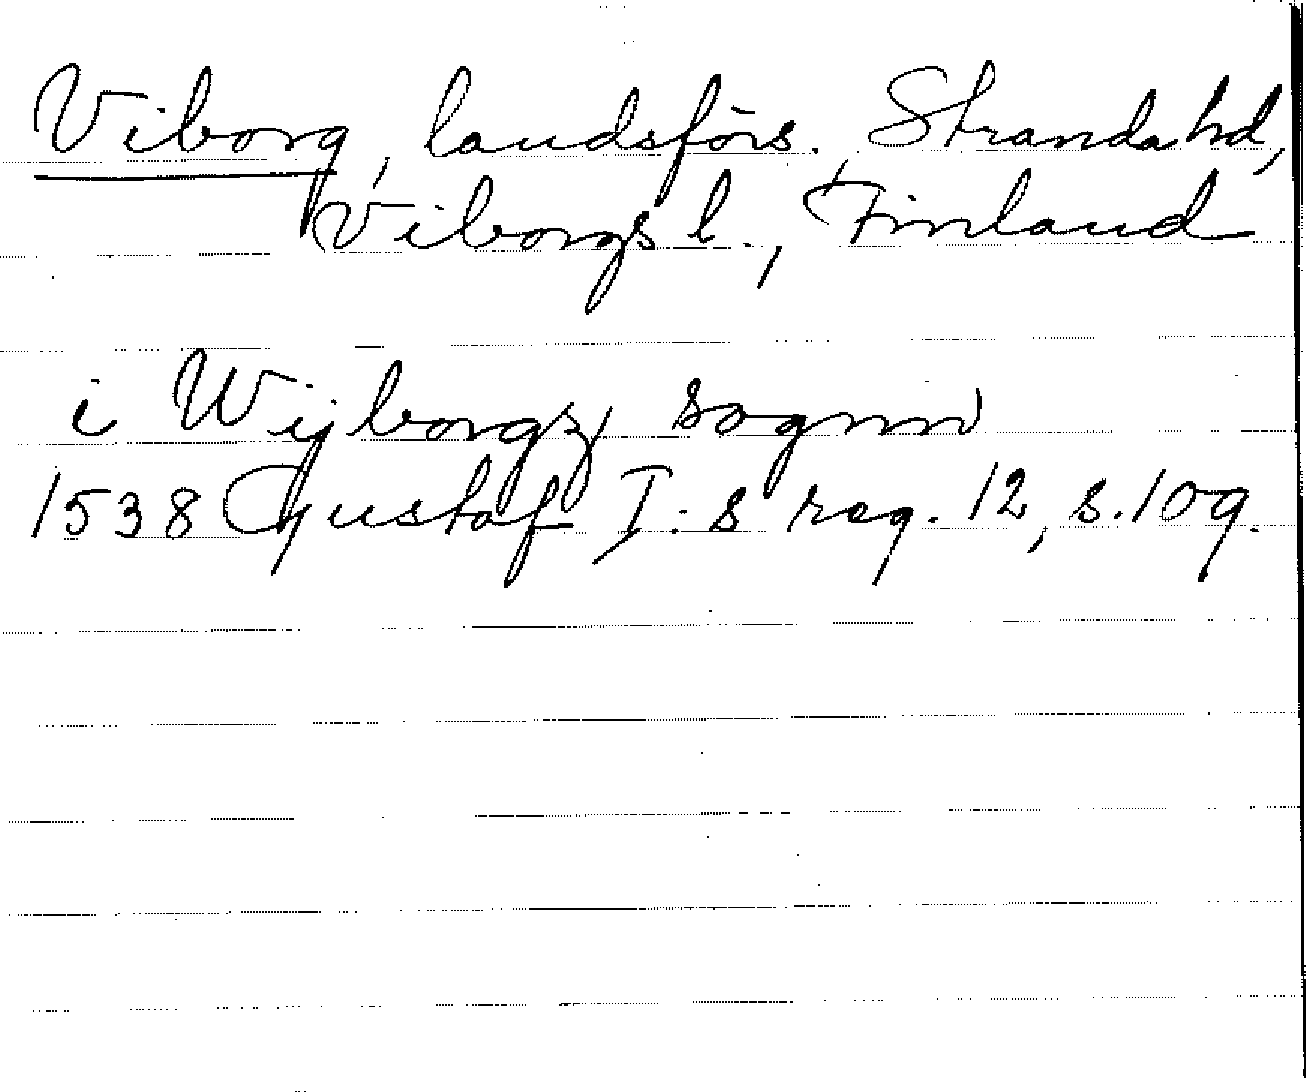 Viborg, landsförs., Stranda hd,
Viborgs l., Finland
i Wijborgz sognn
1538 Gustaf I:s reg. 12, s. 109.